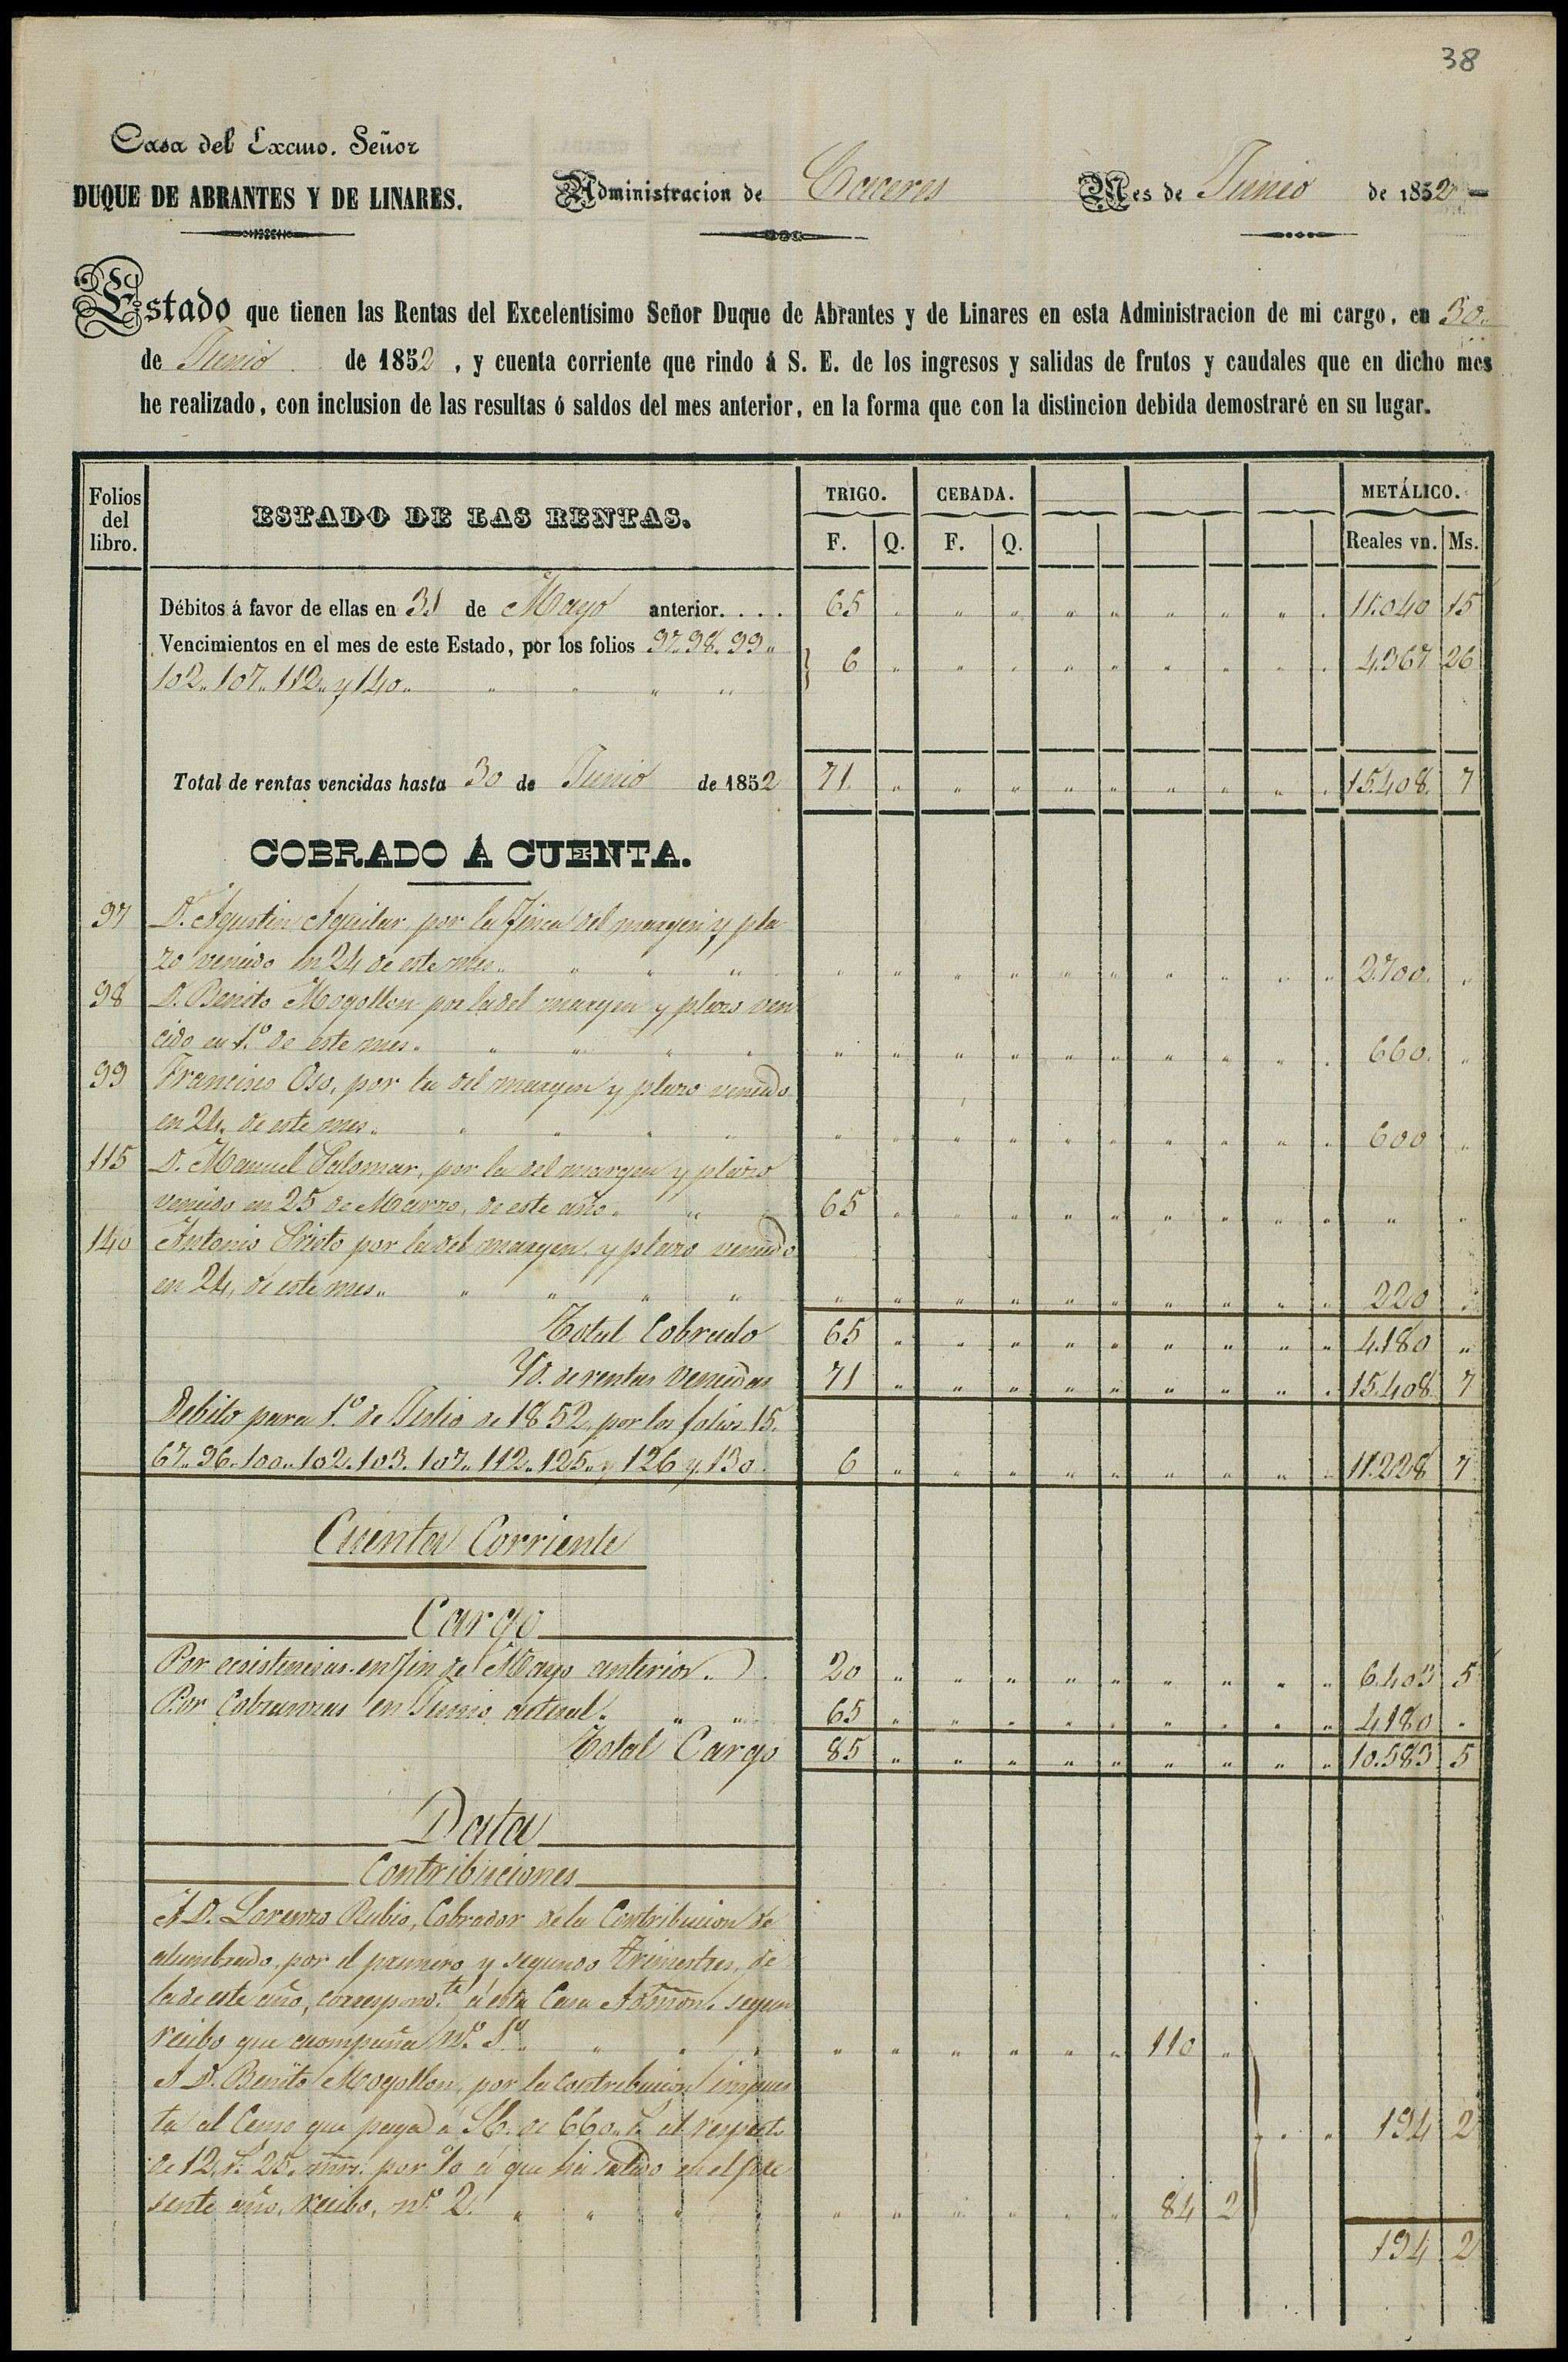 38
Casa del Excmo. Señor
DUQUE DE ABRANTES Y DE LINARES.
Administracion de Caceres
Mes de Junio de 1852
Estado que tienen las Rentas del Excelentísimo Señor Duque de Abrantes y de Linares en esta Administracion de mi cargo, en 30
de Junio de 1852, y cuenta corriente que rindo á S. E. de los ingresos y salidas de frutos y caudales que en dicho mes
he realizado, con inclusion de las resultas ó saldos del mes anterior, en la forma que con la distincion debida demostraré en su lugar.
Folios del libro. ESTADO DE LAS RENTAS. TRIGO. CEBADA. METÁLICO.
F. Q. F. Q. Reales vn. Ms.
Débitos á favor de ellas en 31 de Mayo anterior. . . . 65 " " " " " " " " " 11.040 15
Vencimientos en el mes de este Estado, por los folios 97. 98. 99.
102.. 107.. 112.. y 140.. " " " " 6 " " " " " " " " " 4.367 26
Total de rentas vencidas hasta 30 de Junio de 1852 71 " " " " " " " " " 15.408. 7
COBRADO Á CUENTA.
97 D. Agustin Aguilar, por la finca del margen y pla
zo vencido en 24 de este mes.. " " " " " " " " " " " " " 2.700. "
98 D. Benito Mogollon por la del margen y plazo ven
cido en 1.º de este mes. " " " " " " " " " " " " " " 660. "
99 Francisco Oso, por la del margen y plazo vencido
en 24, de este mes.. " " " " " " " " " " " " " " 600 "
115 D. Manuel Palomar, por la del margen y plazo
vencido en 25 de Marzo, de este año. " " 65 " " " " " " " " " " "
140 Antonio Prieto por la del margen, y plazo vencido
en 24, de este mes.. " " " " " " " " " " " " " " 220 "
Total Cobrado 65 " " " " " " " " " 4.180 "
Yd. de rentas vencidas 71 " " " " " " " " " 15.408. 7
Debito para 1.º de Julio de 1852, por los folios 15.
67.. 96. 100.. 102. 103. 107.. 112.. 125.. y 126 y 130. 6 " " " " " " " " " 11.228 7
Cuenta Corriente
Cargo
Por ecsistencias en fin de Mayo anterior. 20 " " " " " " " " " 6.403 5
Por Cobranzas en Junio actual. " " 65 " " " " " " " " " 4.180 "
Total Cargo 85 " " " " " " " " " 10.583 5
Data
Contribuciones
A D. Lorenzo Rubio, Cobrador de la Contribucion de
alumbrado por el primero y segundo trimestres, de
la de este año, correspond.te á esta Casa Admon. segun
recibo que acompaña n.º 1.º " " " " " " " " " " 110 "
A D. Benito Mogollon, por la contribucion impues
ta al Censo que paga á S.E. de 660.. r.s al respecto
de 12 r.s 25. mrs. por % á que ha salido en el pre
sente año, recibo, n.º 2. " " " " " " " " " " 84 2 " " 194 2
194 2